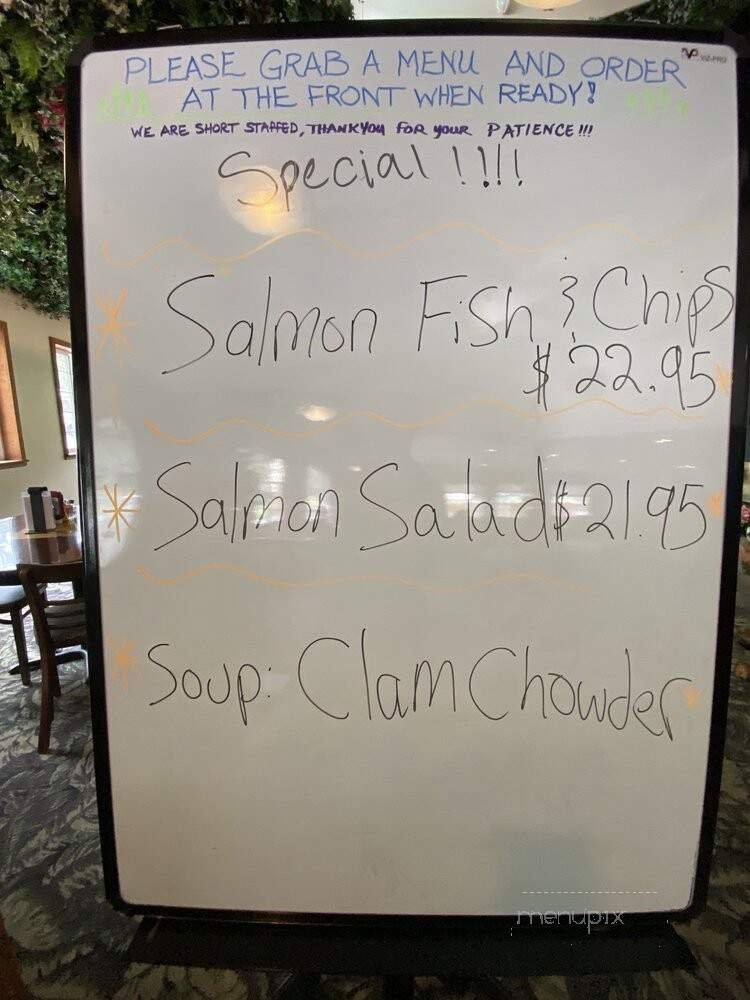 PLEASE GRAB A MENU AND ORDER
AT THE FRONT WHEN READY!
WE ARE SHORT STAFFED, THANKYOU FOR YOUR PATIENCE!!!
Special!!!!
Salmon Fish & Chips
$22.95
Salmon Salad $21.95
Soup: Clam Chowder
VIZ-PRO
menupix